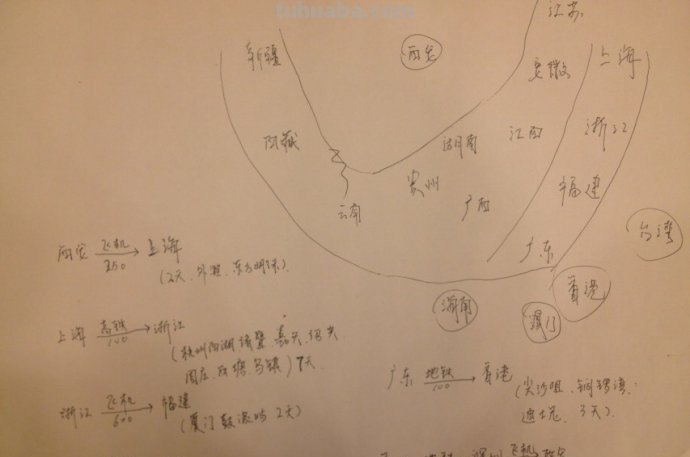 tuhuaba.com
江苏
新疆
西安
安徽
上海
西藏
湖南
江西
浙江
贵州
云南
广西
福建
广东
台湾
海南
澳门
香港
西安 飞机 350 上海
(2天、外滩、东方明珠)
上海 高铁 100 浙江
(杭州西湖 诸暨 嘉兴、绍兴
周庄、西塘、乌镇) 7天
广东 地铁 100 香港 (尖沙咀、铜锣湾、
迪士尼、3天)
浙江 飞机 600 福建
(厦门鼓浪屿 2天)
飞机